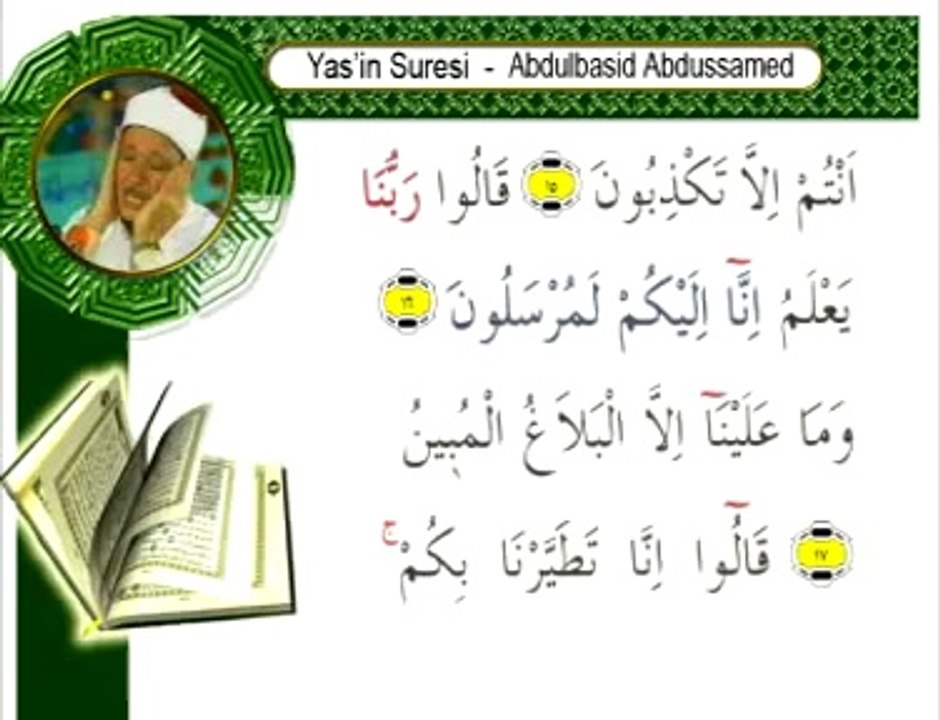 Yas'in Suresi - Abdulbasid Abdussamed
اَنْتُمْ اِلاَّ تَكْذِبُونَ ﴿١٥﴾ قَالُوا رَبُّنَا
يَعْلَمُ اِنَّٓا اِلَيْكُمْ لَمُرْسَلُونَ ﴿١٦﴾
وَمَا عَلَيْنَٓا اِلاَّ الْبَلاَغُ الْمُبِينُ
﴿١٧﴾ قَالُٓوا اِنَّا تَطَيَّرْنَا بِكُمْۚ